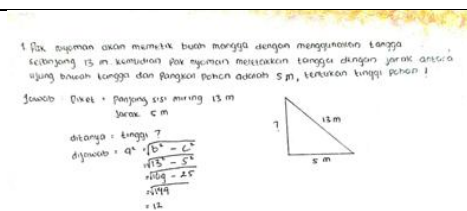 1. Pak nyoman akan memetik buah mangga dengan menggunakan tangga
sepanjang 13 m. kemudian Pak nyoman meletakkan tangga dengan jarak antara
ujung bawah tangga dan Pangkal Pohon adalah 5 m, tentukan tinggi pohon !
Jawab : Diket = Panjang sisi miring 13 m
Jarak 5 m
ditanya = tinggi ?
dijawab = a² = √b² - c²
= √13² - 5²
= √169 - 25
= √144
= 12
?
13 m
5 m